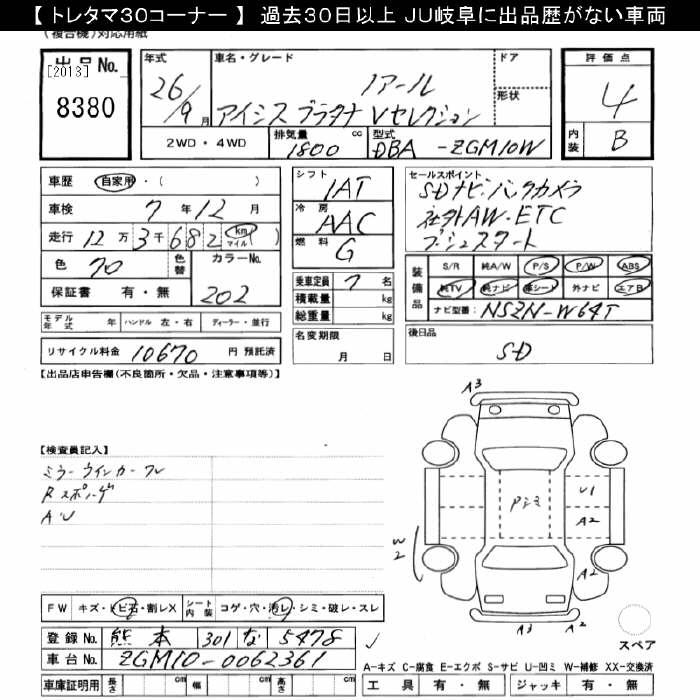 【トレタマ30コーナー】 過去30日以上 JU岐阜に出品歴がない車両
(複合機)対応用紙
出品No.
[2013]
8380
年式
26/9月
車名・グレード
ノアール
アイシス プラタナ Vセレクション
ドア
形状
評価点
4
内装
B
2WD・4WD
排気量
1800 cc
型式
DBA -ZGM10W
車歴 自家用・( )
車検 7年12月
走行 12万3千682 km マイル( )
色 70 色替 カラーNo. 202
保証書 有・無
モデル年式 年 ハンドル 左・右 ディーラー・並行
リサイクル料金 10670 円 預託済
シフト
IAT
冷房
AAC
燃料
G
乗車定員 7名
積載量 kg
総重量 kg
名変期限
月 日
セールスポイント
SDナビ・バックカメラ
社外AW・ETC
プッシュスタート
装備品
S/R 純A/W P/S P/W ABS
純TV 純ナビ 革シート 外ナビ エアB
ナビ型番: NSZN-W64T
後日品
SD
【出品店申告欄(不良箇所・欠品・注意事項等)】
【検査員記入】
ミラーウインカーワレ
AU
A3
U1
A2
W2
A2
A3
A2
FW キズ・トビ石・割レX シート内装 コゲ・穴・汚レ・シミ・破レ・スレ
登録No. 熊本 301 な 5478
車台No. ZGM10-0062361
車庫証明用 長さ cm 幅 cm 高さ cm
スペア
A-キズ C-腐食 E-エクボ S-サビ U-凹ミ W-補修 XX-交換済
工具 有・無 ジャッキ 有・無